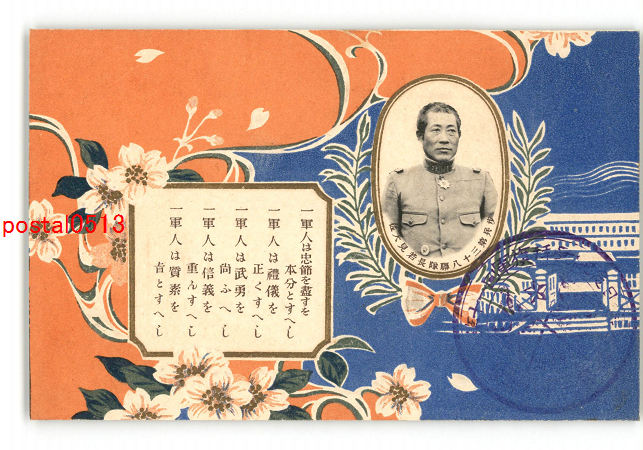 一軍人は忠節を盡すを
本分とすへし
一軍人は禮儀を
正くすへし
一軍人は武勇を
尚ふへし
一軍人は信義を
重んすへし
一軍人は質素を
旨とすへし
歩兵第三十八聯隊長
postal0513